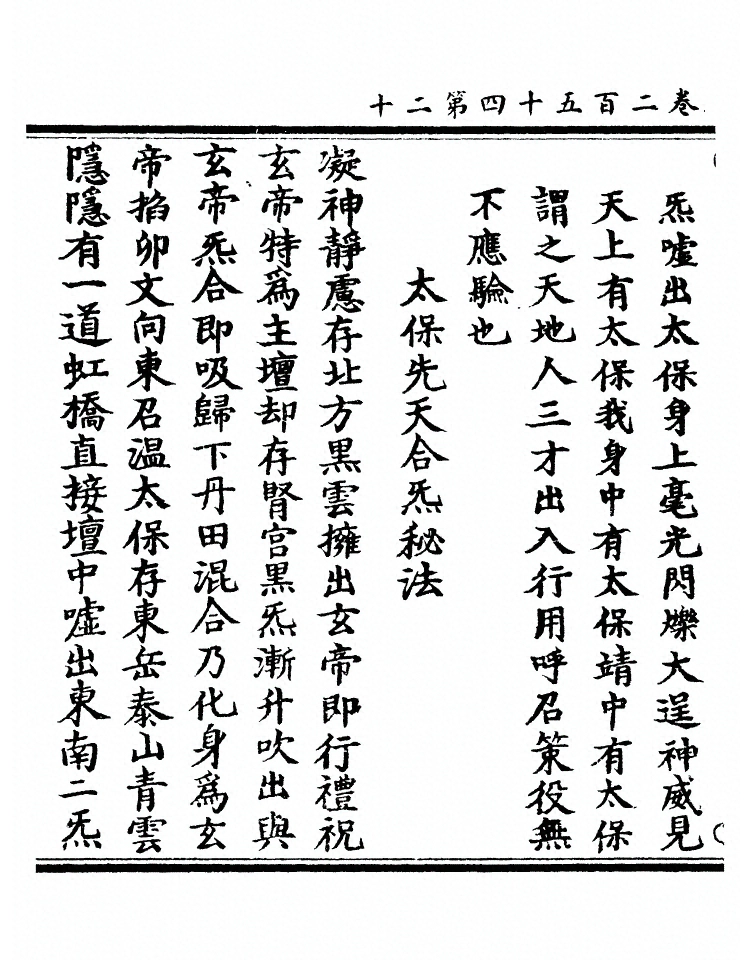 卷二百五十四第二十
炁噓出太保身上毫光閃爍大逞神威見
天上有太保我身中有太保靖中有太保
謂之天地人三才出入行用呼召策役無
不應驗也
太保先天合炁秘法
凝神靜慮存北方黑雲擁出玄帝即行禮祝
玄帝特為主壇却存腎宮黑炁漸升吹出與
玄帝炁合即吸歸下丹田混合乃化身為玄
帝掐卯文向東召溫太保存東岳泰山青雲
隱隱有一道虹橋直接壇中噓出東南二炁